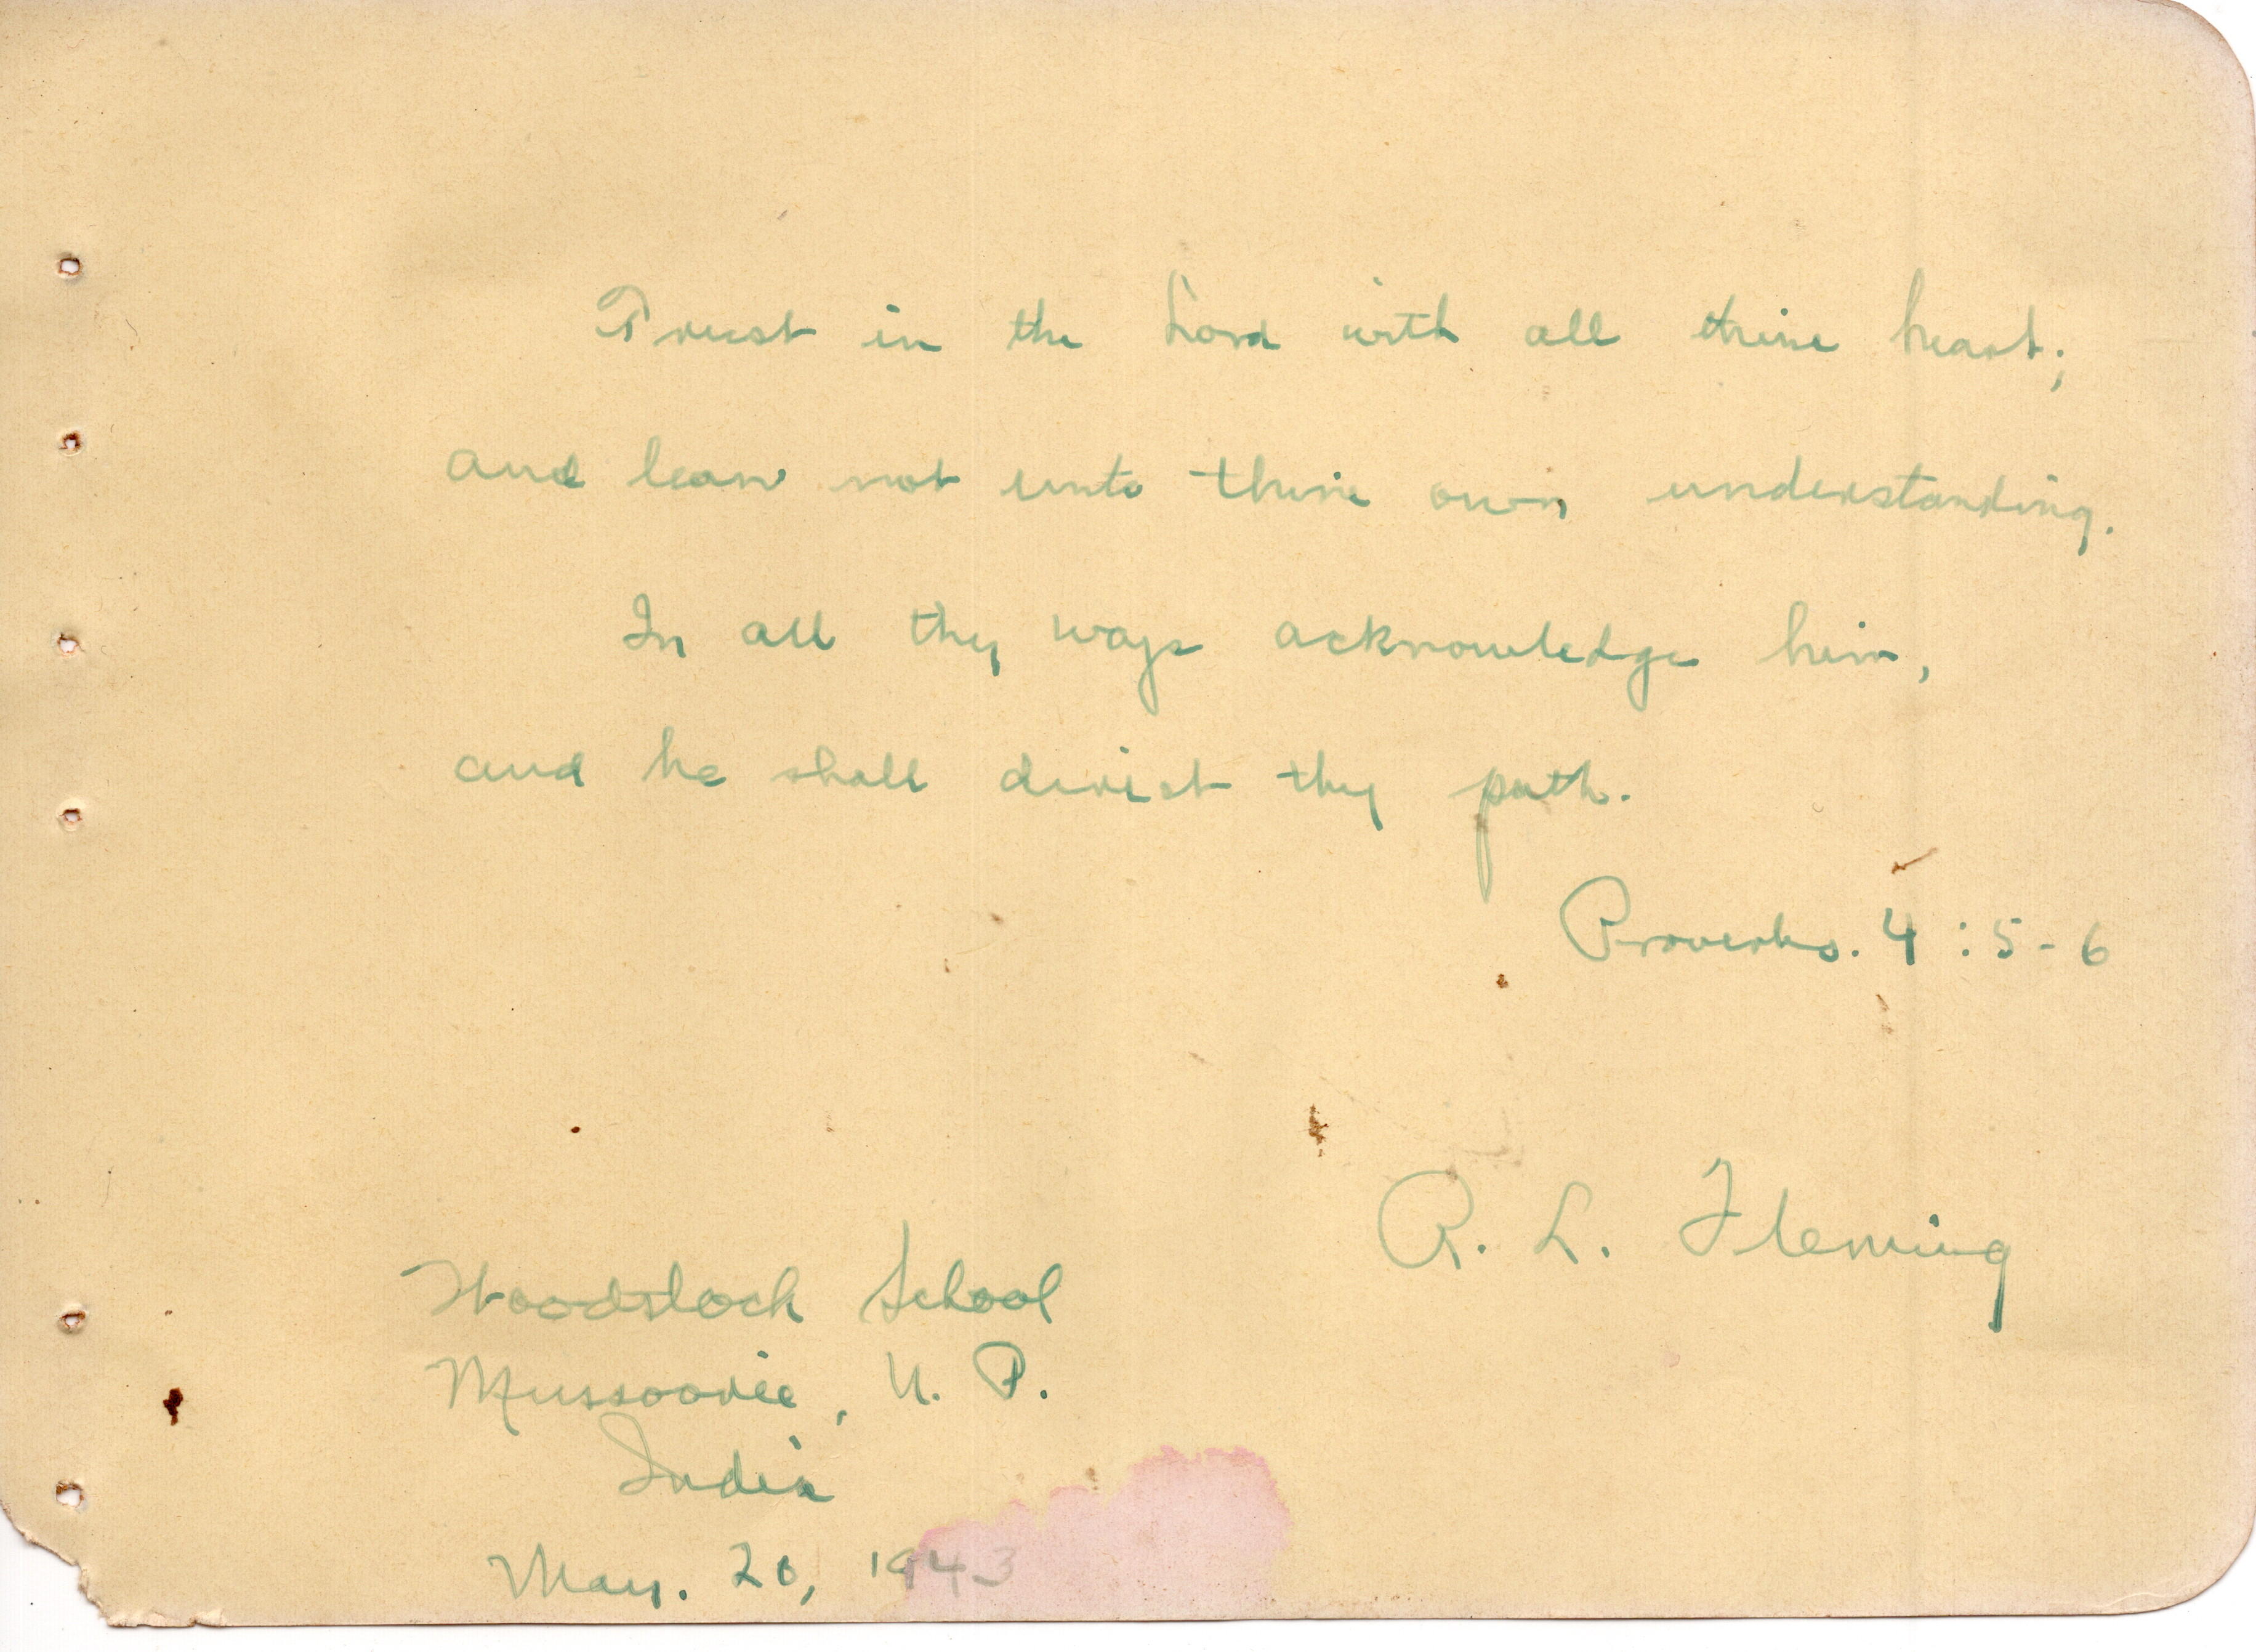 Trust in the Lord with all thine heart;
and lean not unto thine own understanding.
In all thy ways acknowledge him,
and he shall direct thy path.
Proverbs. 4:5-6
R. L. Fleming
Woodstock School
Mussoorie, U. P.
India
May. 20, 1943